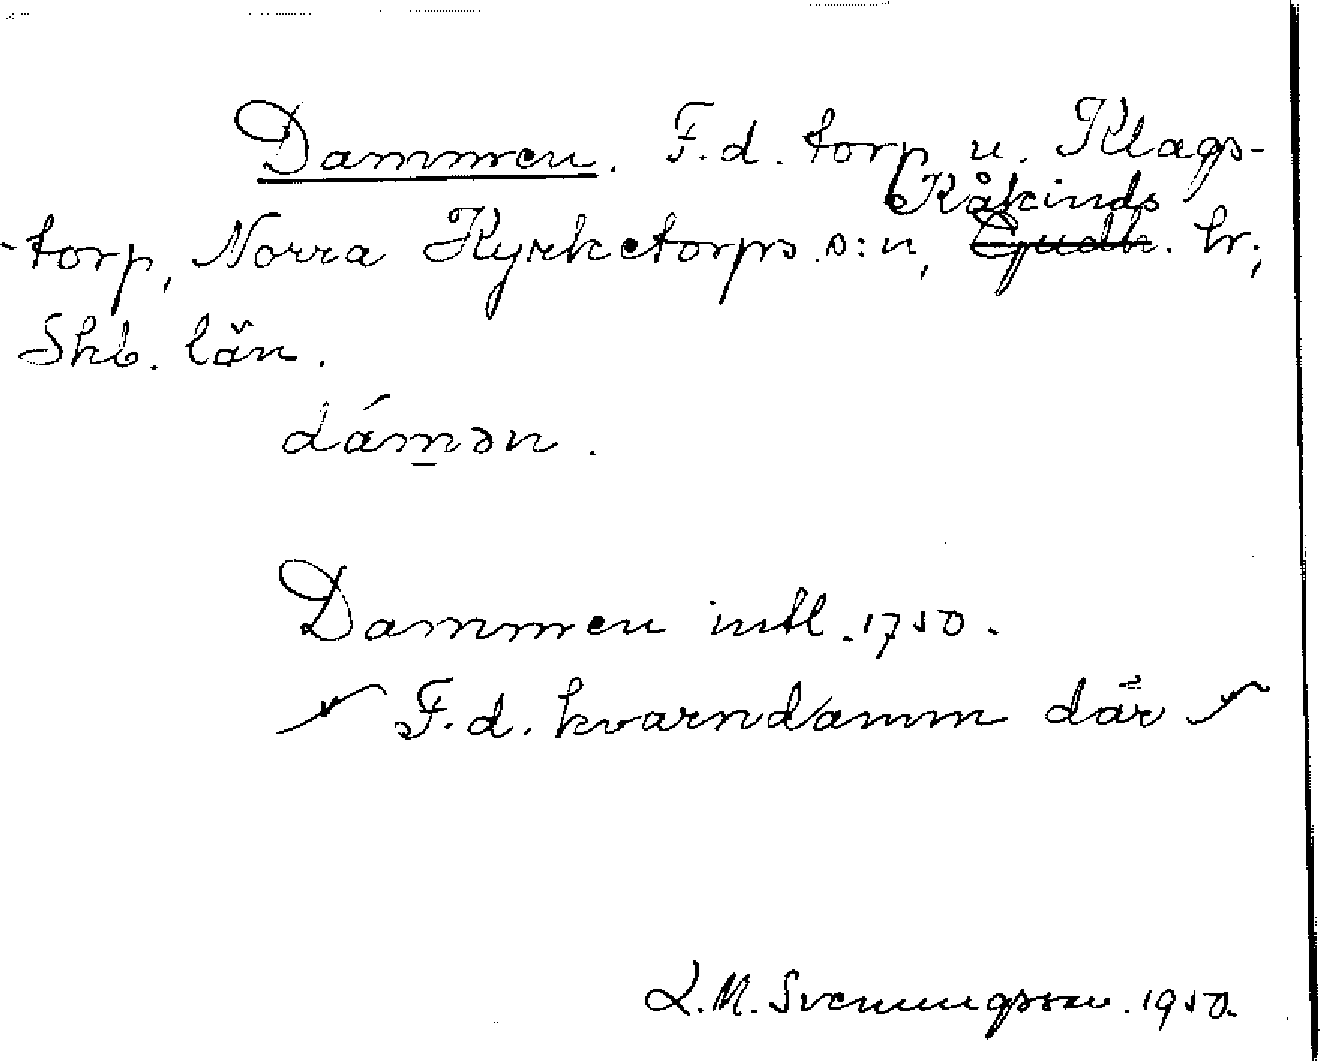 Dammen. F.d. torp u. Klags-
Kåkinds
torp, Norra Kyrketorps s:n, Gudh. hr,
Skb. län.
dámən.
Dammen intl. 1750.
F.d. kvarndamm där
L.M. Svenungsson. 1950.